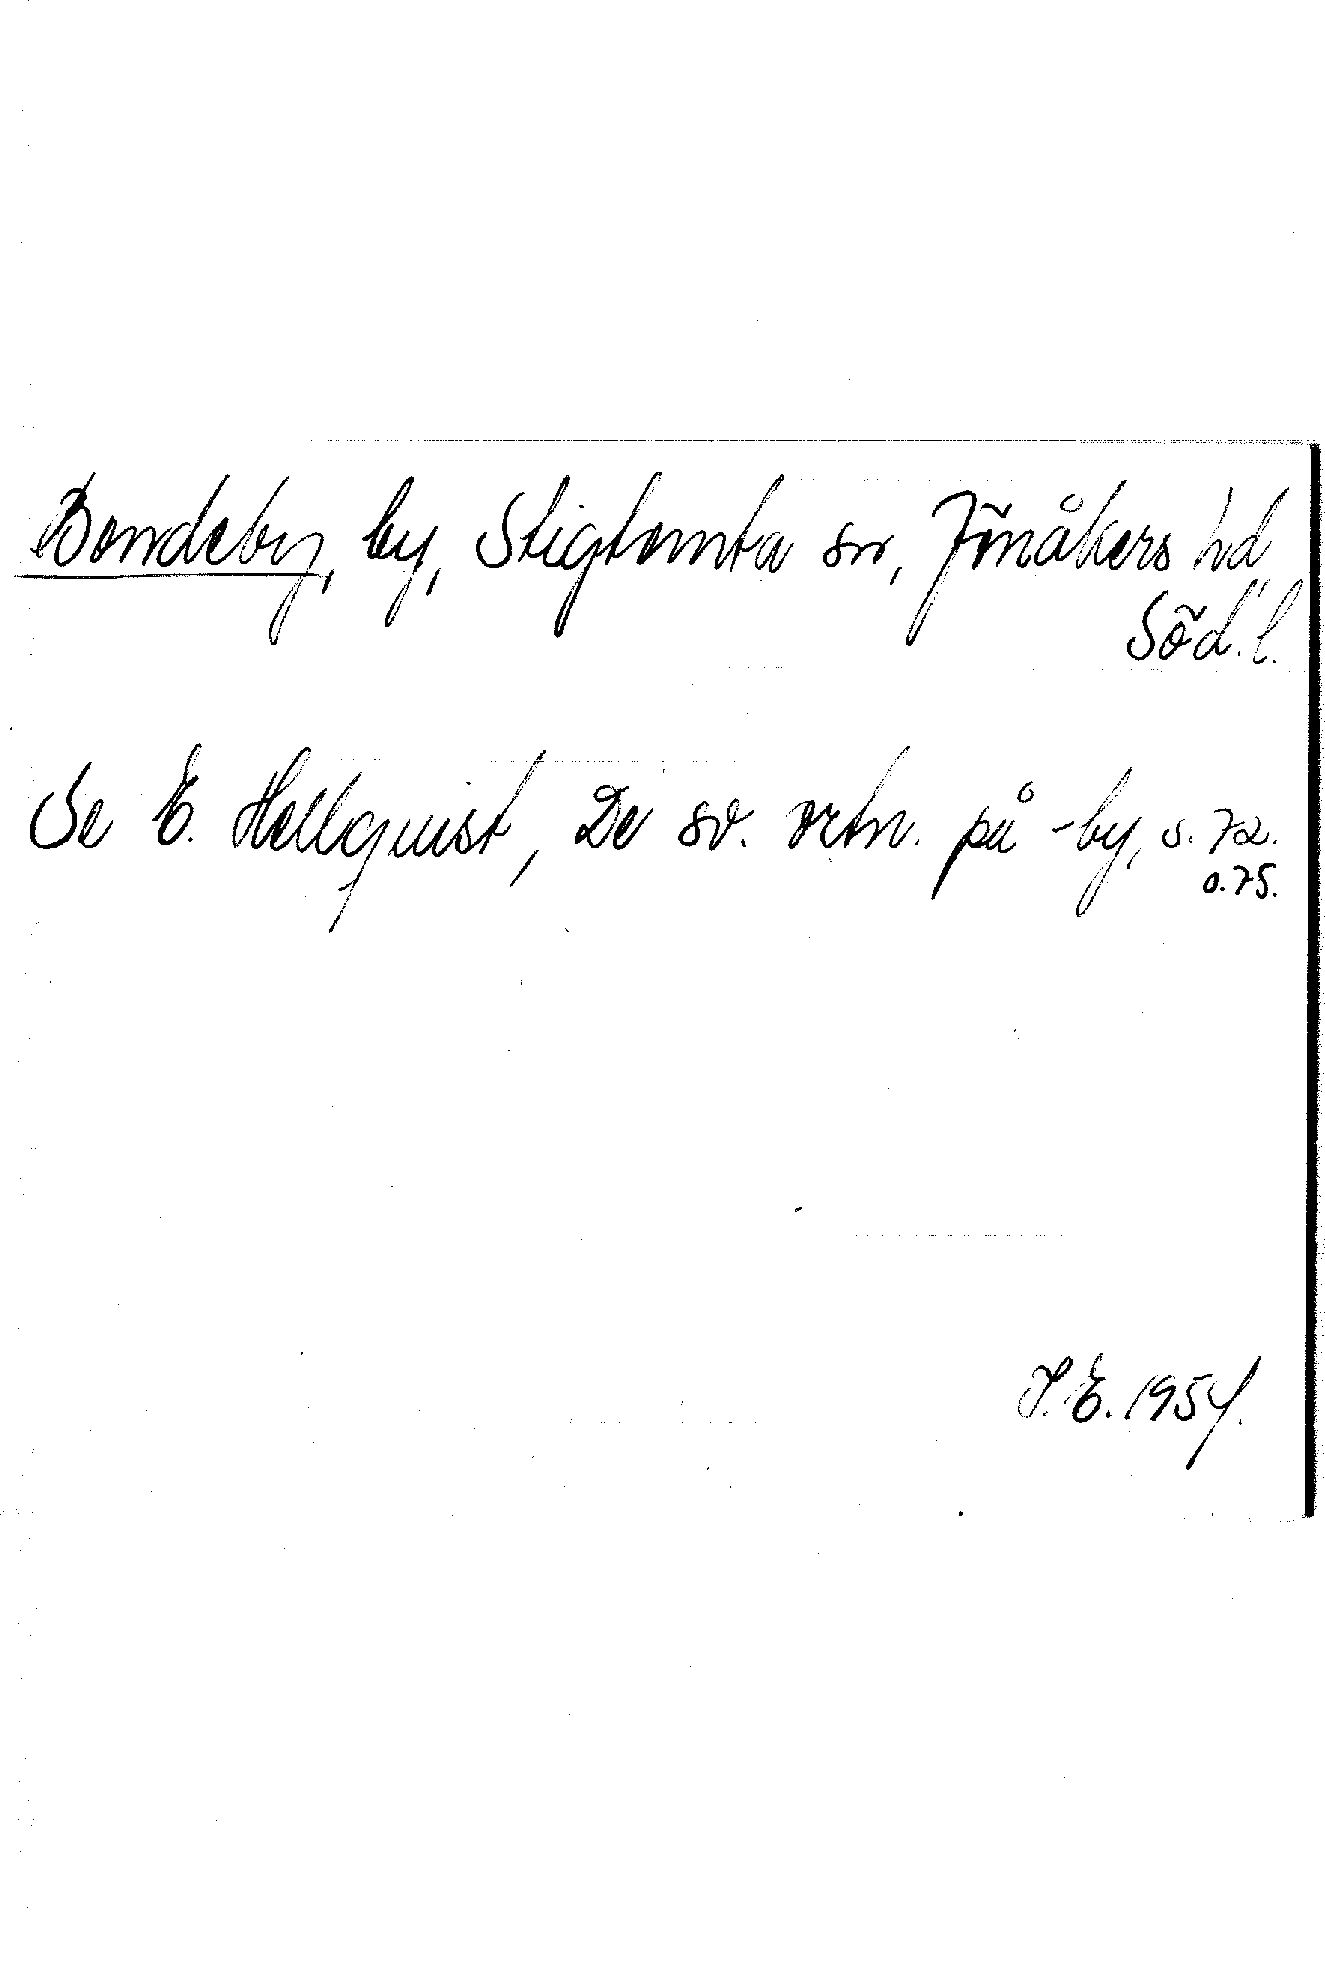 Bondeby, by, Stigtomta sn, Jönåkers hd
Söd.l.
Se E. Hellquist, De sv. ortn. på -by, s. 72.
o. 75.
I. E. 1954.